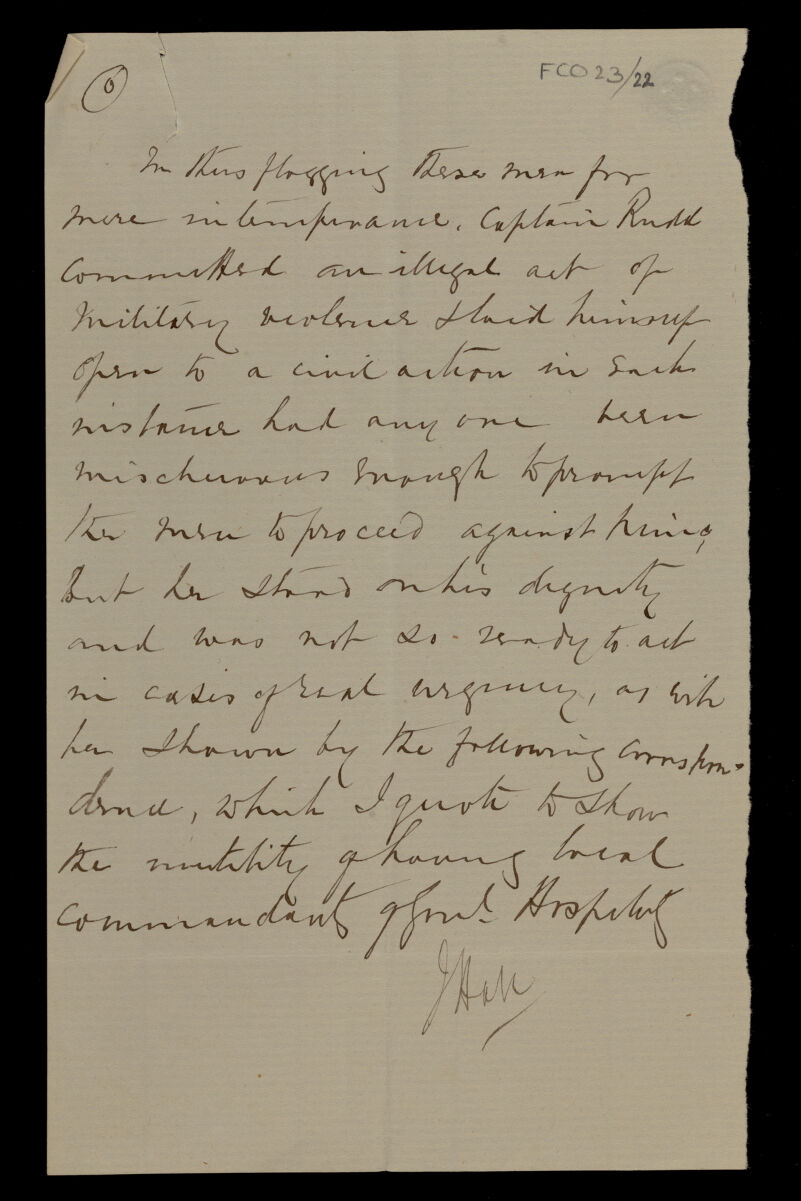 6
FCO 23/22
In thus flogging these men for
mere intemperance, Captain Rudd
committed an illegal act of
Military violence & laid himself
open to a civil action in each
instance had any one been
mischievous enough to prompt
the men to proceed against him,
But he stood on his dignity
and was not so ready to act
in cases of real urgency, as will
be shown by the following correspon-
dence, which I quote to show
the inutility of having local
commandants of Genl. Hospitals
J Hall